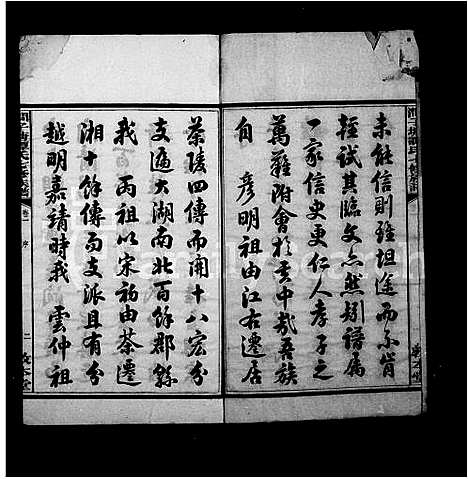 未能信則雖坦途而不肯
輕試其臨文亦然矧譜屬
一家信史更仁人孝子之
萬難附會於其中哉吾族
自 彥明祖由江右遷居
茶陵四傳而開十八宏分
支遍大湖南北百餘郡縣
我 丙祖以宋初由茶遷
湘十餘傳而支派且有分
越明嘉靖時我 雲仲祖
卷一 序
二 敦本堂
FamilySearch